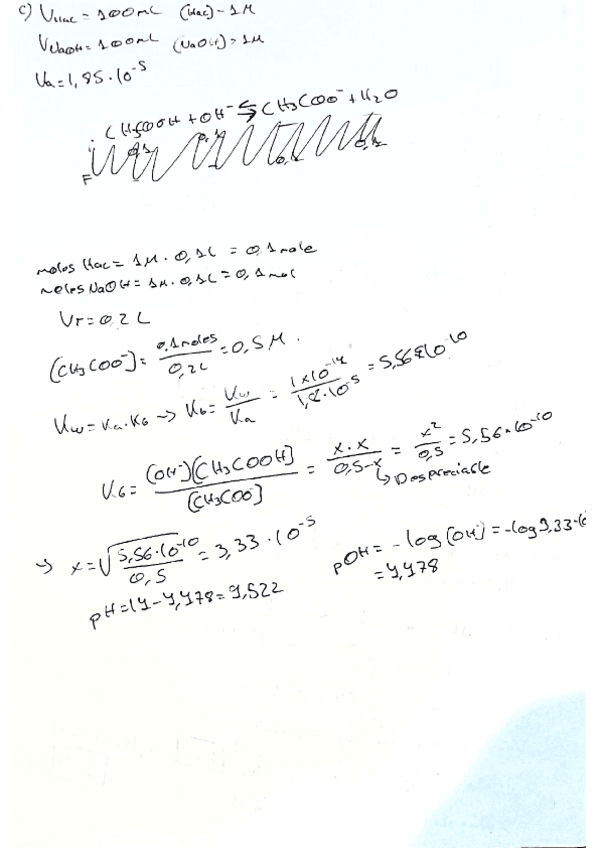 c) VHac = 100mL (Hac) = 1M
VNaOH = 100mL (NaOH) = 1M
Ka = 1,85·10^-5
CH3COOH + OH^- ⇆ CH3COO^- + H2O
moles Hac = 1M · 0,1L = 0,1 mole
moles NaOH = 1M · 0,1L = 0,1 mol
Vr = 0,2L
(CH3COO^-) = 0,1 moles / 0,2L = 0,5M.
Kw = Ka · Kb → Kb = Kw / Ka = 1x10^-14 / 1,8·10^-5 = 5,56x10^-10
Kb = (OH^-)(CH3COOH] / (CH3COO^-] = x · x / 0,5-x = x^2 / 0,5 = 5,56·10^-10
↳ Despreciable
→ x = √5,56·10^-10 / 0,5 = 3,33·10^-5
pOH = -log(OH^-) = -log
= 4,478
pH = 14 - 4,478 = 9,522